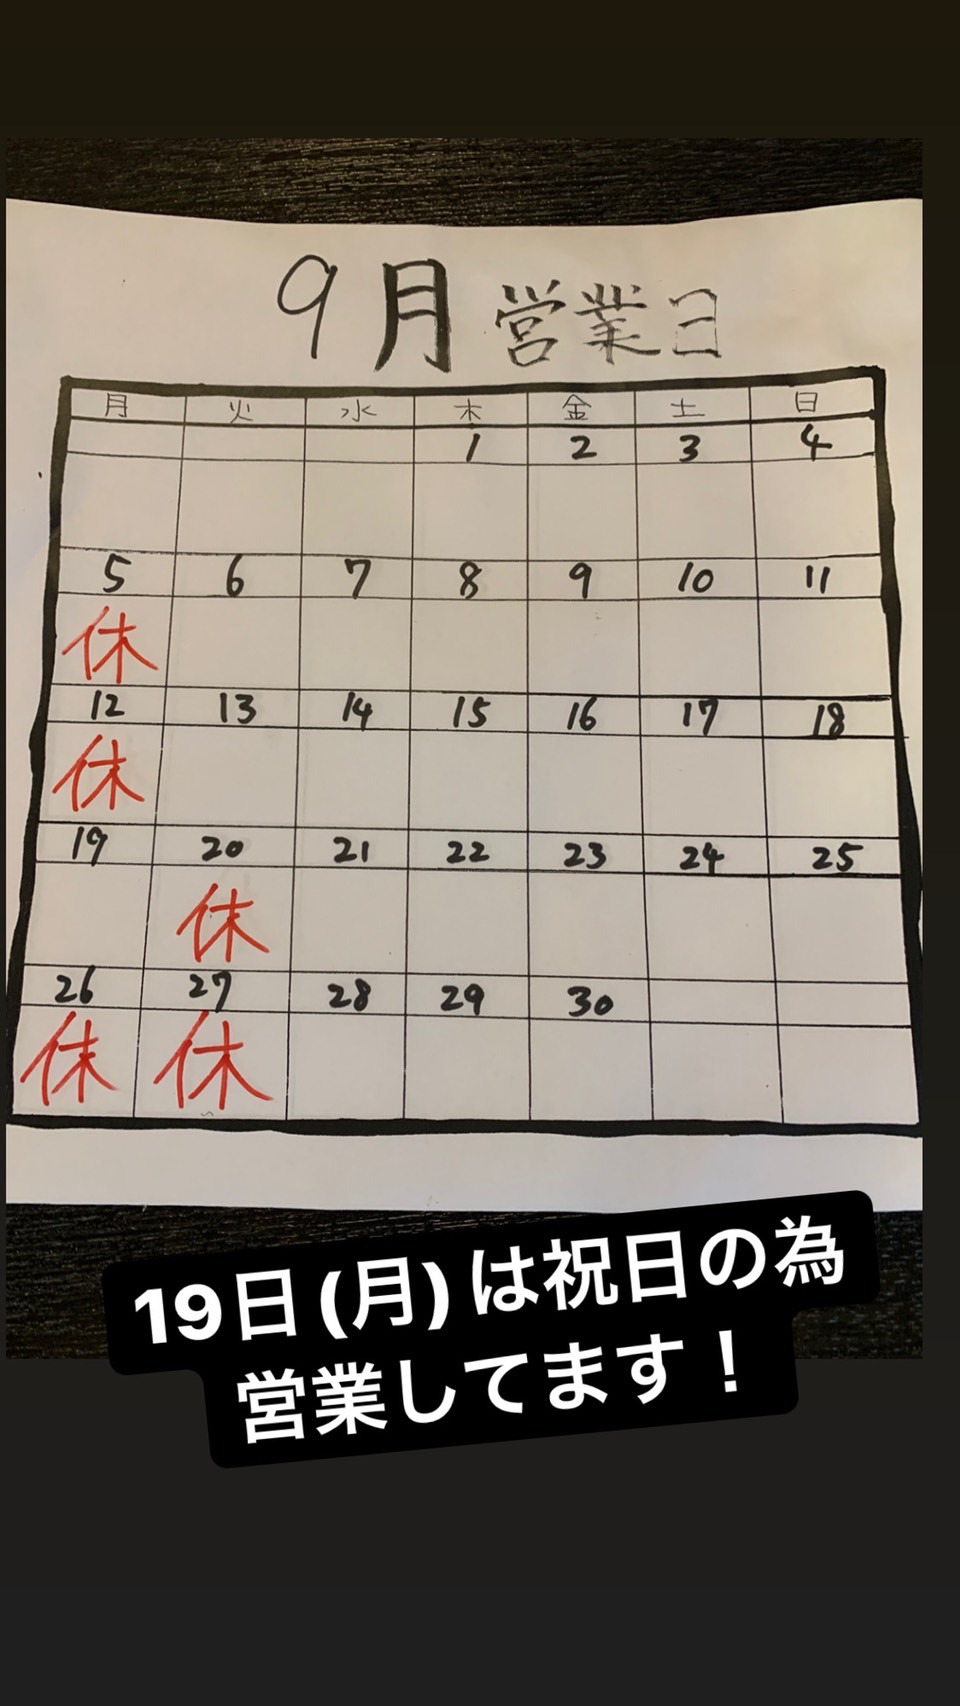 9月 営業日
月 火 水 木 金 土 日
1 2 3 4
5 6 7 8 9 10 11
休
12 13 14 15 16 17 18
休
19 20 21 22 23 24 25
休
26 27 28 29 30
休 休
19日(月)は祝日の為
営業してます！